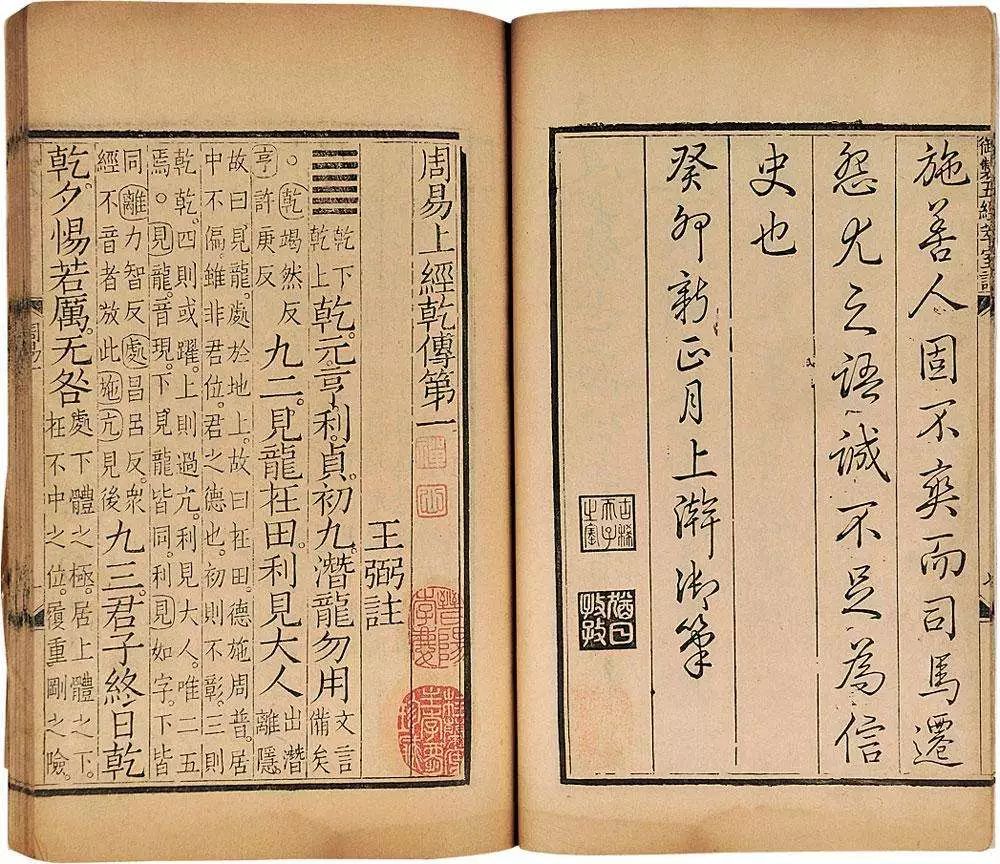 御製五經萃室記
施善人固不爽而司馬遷
怨尤之語誠不足為信
史也
癸卯新正月上澣御筆
古稀天子之寶
猶日孜孜
周易上經乾傳第一
王弼註
䷀乾下乾上乾。元亨利貞。初九。潛龍勿用文言備矣
。乾竭然反亨許庚反九二。見龍在田。利見大人出潛離隱。
故曰見龍。處於地上。故曰在田。德施周普。居
中不偏。雖非君位。君之德也。初則不彰。三則
乾乾。四則或躍。上則過亢。利見大人。唯二五
焉。見龍。音現。下見龍皆同。利見如字。下皆
同離力智反處昌呂反。衆經不音者放此施亢見後九三。君子終日乾
乾。夕惕若厲。无咎處下體之極。居上體之下。在不中之位。履重剛之險。
周易一